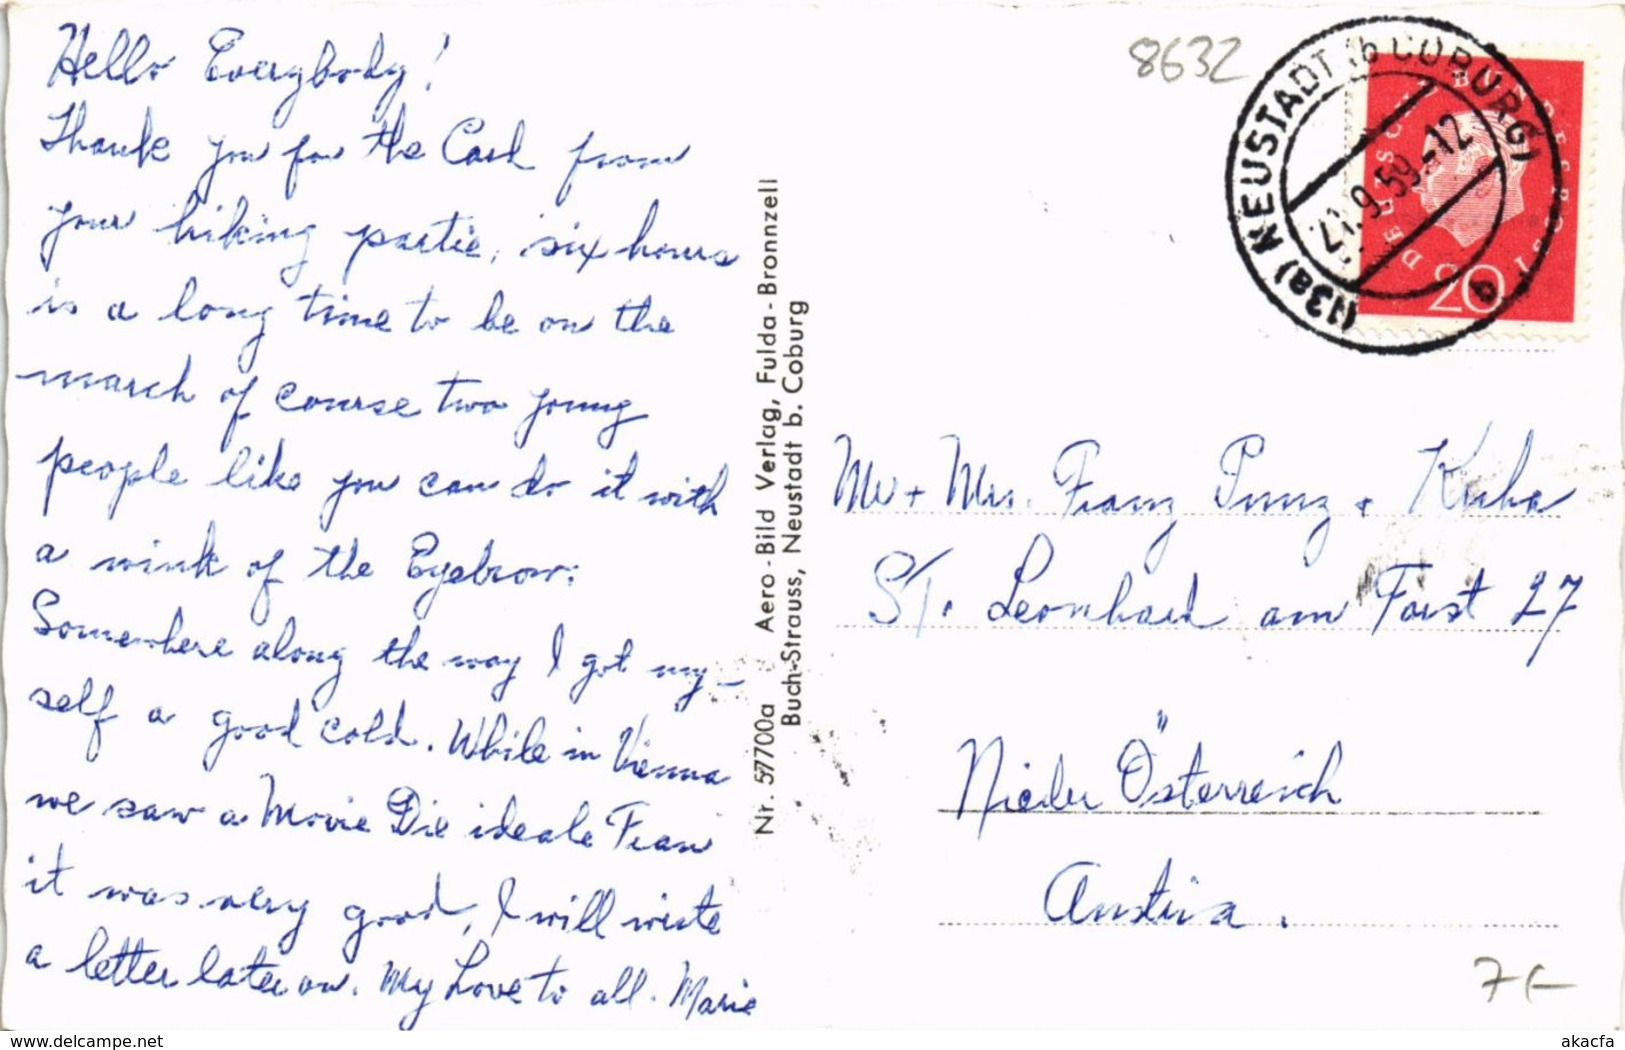 Hello Everybody!
Thank you for the Card from
your hiking partie, six hours
is a long time to be on the
march of course two young
people like you can do it with
a wink of the Eyebrow.
Somewhere along the way I got my-
self a good cold. While in Vienna
we saw a Movie Die ideale Frau
it was very good, I will write
a letter later on. My Love to all. Marie
Nr. 57700a Aero-Bild Verlag, Fulda-Bronnzell
Buch-Strauss, Neustadt b. Coburg
8632
(13a) NEUSTADT (b COBURG)
21.9.59.-12
DEUTSCHE BUNDESPOST
20
Mr + Mrs. Franz Punz + Kuba
St. Leonhard am Forst 27
Nieder Österreich
Austria.
7
delcampe.net
akacfa